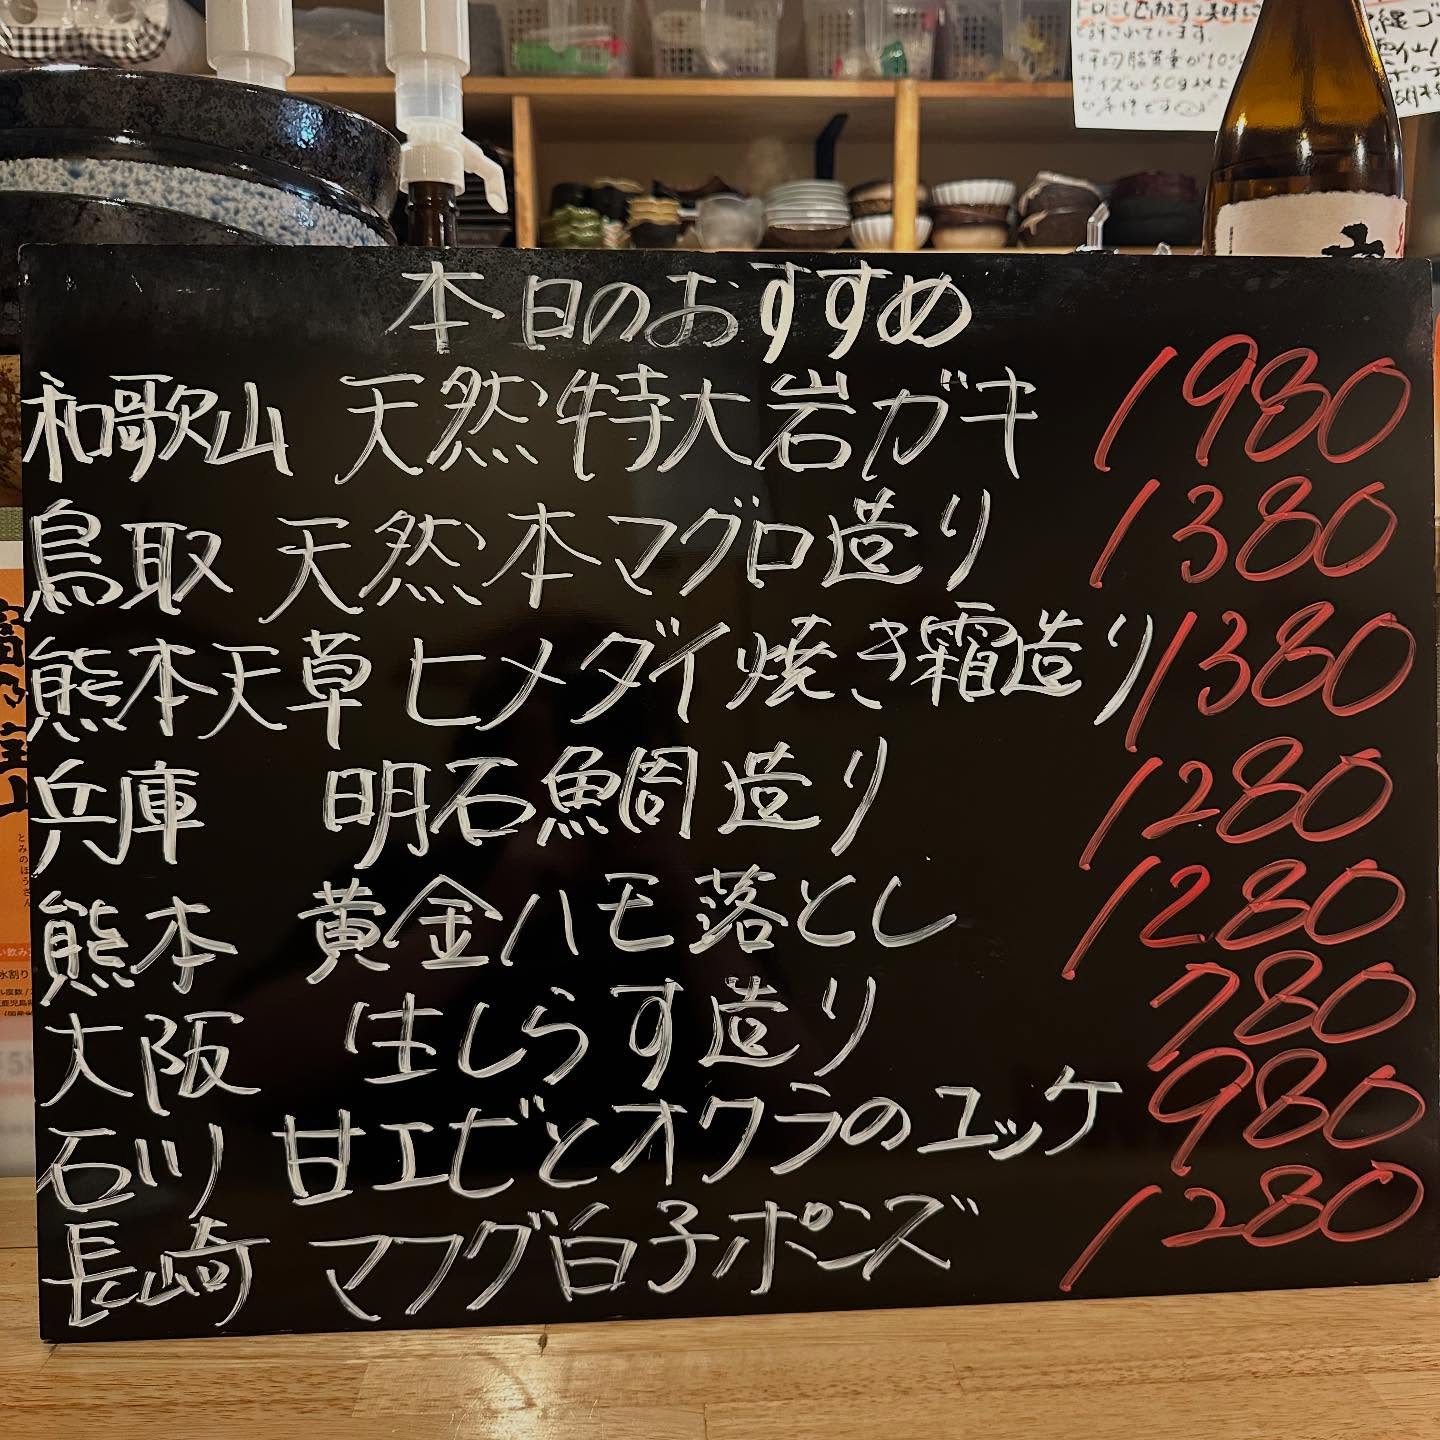 本日のおすすめ
和歌山 天然特大岩ガキ 1980
鳥取 天然本マグロ造り 1380
熊本天草 ヒメダイ焼き霜造り 1380
兵庫 明石鯛造り 1280
熊本 黄金ハモ落とし 1280
大阪 生しらす造り 780
石川 甘エビとオクラのユッケ 980
長崎 マフグ白子ポンズ 1280
とみのほうざん
水割り